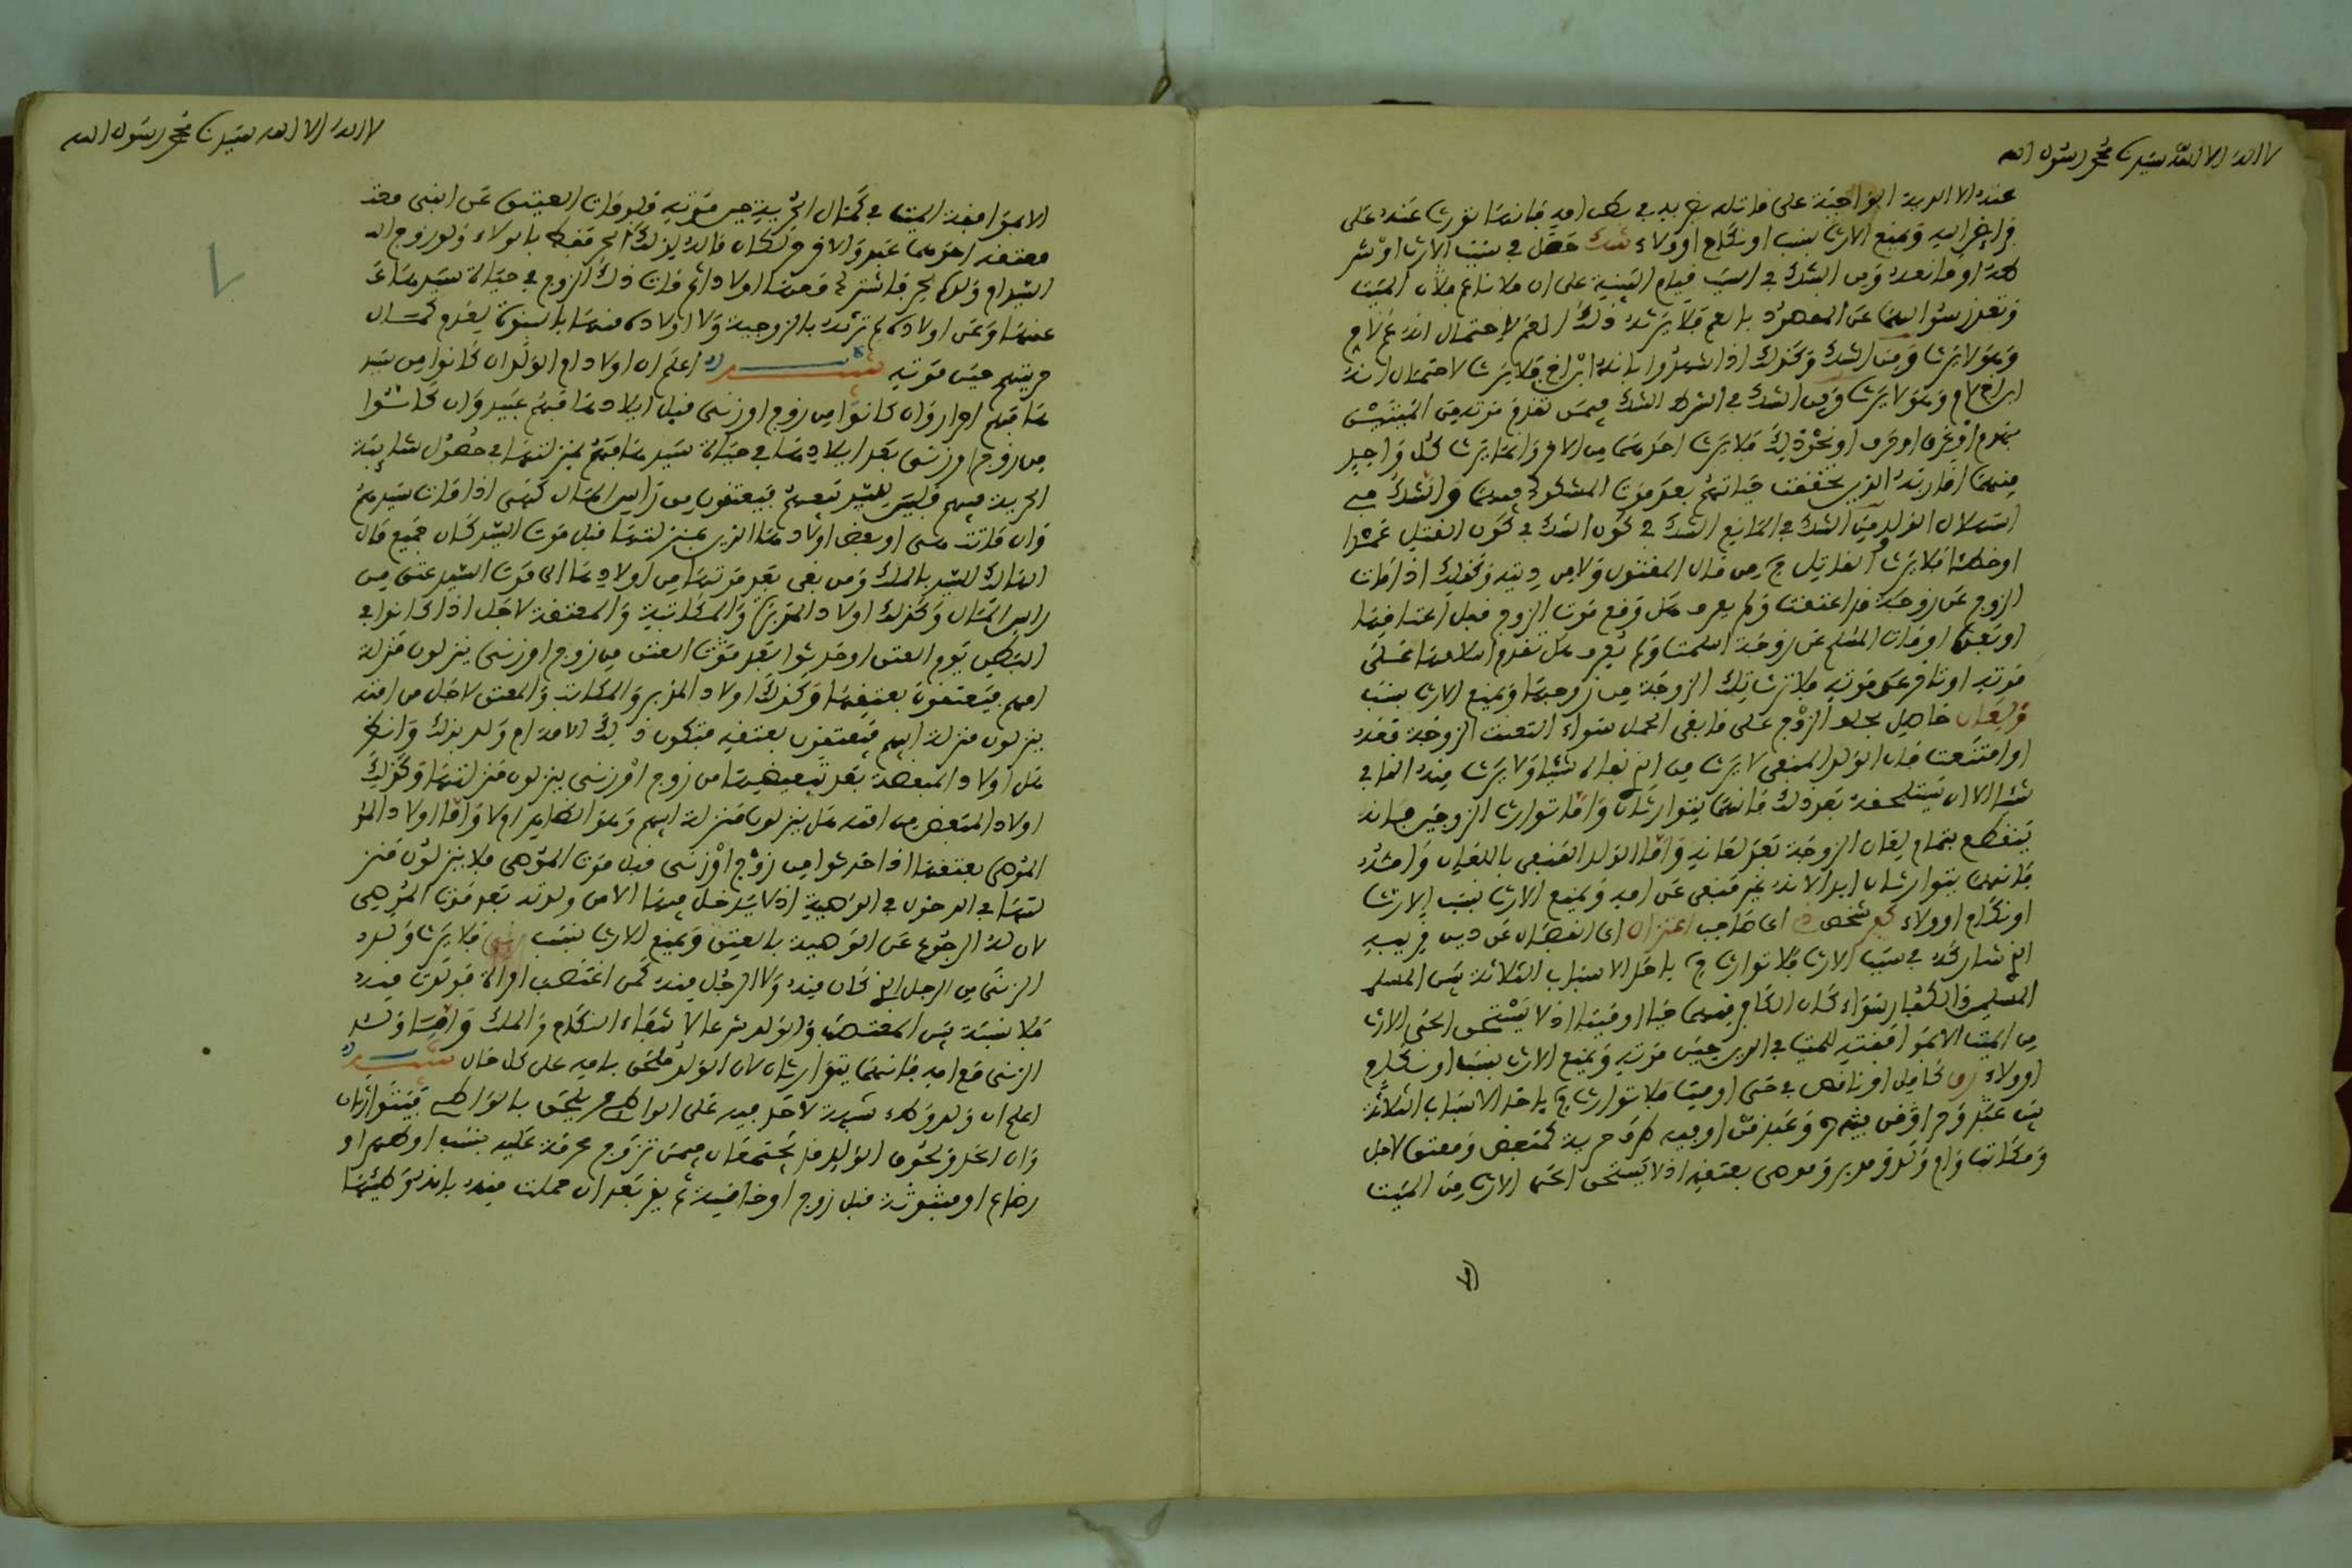 لا اله الا الله سيدنا محمد رسول الله
عنه الا الدية الواجبة على قاتله بضربه في بطن امه فانها تورث عنه على
فرايض الله ويمنع الارث بنسب او نكاح او ولاء شك حصل في سبب الارث او شر
طه او مانعه ومن الشك في السبب قيام البينة على ان هلانا عم هلان الميت
وتعذر سؤالها عن المعهود بالعم فلا يرثه ذلك العم لاحتمال انه عم لام
وهو لا يرث ومن الشك وكذلك اذا شهدوا بانه ابن اخ فلا يرث لاحتمال انه
ابن اخ لام وهو لا يرث ومن الشك في الشرط الشك فيمن تقدم موته من الميتين
بهدم او غرق او حرق او نحو ذلك فلا يرث احدهما من الاخر وانما يرث كل واحد
منهما اقاربه الذين تحققت حياتهم بعد موت المشكوك فيهما والشك في
استهلال المولود ومن الشك في المانع الشك في كون الشك في كون القتل عمدا
او خطئا فلا يرث القاتل ح من مال المقتول ولا من ديته وكذلك اذا مات
الزوج عن زوجة قد اعتقت ولم يعرف هل وقع موت الزوج قبل اعتاقها
او بعده او مات المسلم عن زوجة اسلمت ولم يعرف هل تقدم اسلامها على
موته او تاخر عن موته فلا ترث تلك الزوجة من زوجها ويمنع الارث بنسب
ولعان حاصل بحلف الزوج على ما بقي الحمل سواء التعنت الزوجة بعده
او امتنعت فان الولد المنفي لا يرث من الذي نفاه شيئا ولا يرث منه النافي
شيئا الا ان يستلحقه بعد ذلك فانهما يتوارثان واما توارث الزوجين فانه
ينقطع بتمام لعان الزوجة بعد لعانه واما الولد المنفي باللعان وامه
فانهما يتوارثان ابدا لانه غير منفي عن امه ويمنع الارث بنسب الارث
او نكاح او ولاء كفر شخص ذي اي صاحب اعتزال اي انفصال عن دين قريبه
الذي شاركه في سبب الارث فلا توارث ح باحد الاسباب الثلاثة بين المسلم
المسلم والكفار سواء كان الكافر منهما حيا او ميتا اذ لا يستحق الحي الارث
من الميت الا بموافقته للميت في الدين حين موته ويمنع الارث بنسب او نكاح
او ولاء رق كامل او ناقص في حي او ميت فلا توارث ح باحد الاسباب الثلاثة
بين عبد وحر او من فيه وعبد قن او فيه طرف حرية كمبعض ومعتق لاجل
ومكاتب وام ولد ومدبر وموصى بعتقه اذ لا يستحق الحي الارث من الميت
لا اله الا الله سيدنا محمد رسول الله
الا بموافقة الميت في كمال الحرية حين موته فلو مات العتيق عن ابني معتقه
معتقه احدهما عبد والاخر حر كان ماله لذلك الحر فقط بالولاء ولو زوج اله
السيد ام ولده لحر فاشترى معها اولادا ثم مات ذلك الزوج في حياة سيدها عنـ
عنها وعن اولاده لم ترثه بالزوجية ولا اولاده منها بالبنوة لعدم كمال
حريتهم حين موته تنبيه اعلم ان اولاد ام الولد ان كانوا من سيد
ها فهم احرار وان كانوا من زوج او زنى قبل ايلادها فهم عبيد وان كانوا
من زوج او زنى بعد ايلادها في حياة سيدها فهم بمنزلتها في حصول شايبة
الحرية فيهم فليس للسيد بيعهم فيعتقون من راس المال كهي اذا مات سيدهم
وان ماتت هي او بعض اولادها الذين بمنزلتها قبل موت السيد كان جميع مال
الهالك للسيد بالملك ومن بقي بعد موتها من اولادها الى موت السيد عتق من
راس المال وكذلك اولاد المدبرة والمكاتبة والمعتقة لاجل اذا كانوا في
البطن يوم العتق او حدثوا بعد موت العتق من زوج او زنى ينزلون منزلة
امهم فيعتقون بعتقها وكذلك اولاد المدبر والمكاتب والمعتق لاجل من امته
ينزلون منزلة ابيهم فيعتقون بعتقه فتكون تلك الامة ام ولد بذلك وانظر
هل اولاد المبعضة بعد تبعيضها من زوج او زنى ينزلون منزلتها وكذلك
اولاد المبعض من امته هل ينزلون منزلة ابيهم وهو الظاهر او لا واما اولاد المو
الموصى بعتقها اذا حدثوا من زوج او زنى قبل موت الموصي فلا ينزلون منز
لتها في الدخول في الوصية اذ لا يدخل فيها الا من ولدته بعد موت الموصي
لان له الرجوع عن الوصية بالعتق ويمنع الارث بنسب زنى فلا يرث ولد
الزنى من الرجل الذي كان منه ولا الرجل منه كمن اغتصب امراة فولدت منه
فلا نسبة بين المغتصب والولد شرعا لانتفاء النكاح والملك واما ولد
الزنى مع امه فانهما يتوارثان لان الولد ملحق بامه على كل حال تنبيه
اعلم ان ولد وطء شبهة لا حد فيه على الواطئ يلحق بالواطئ فيتوارثان
وان الحد ولحوق الولد قد يجتمعان فيمن تزوج محرمة عليه بنسب او صهر او
رضاع او مبتوتة قبل زوج او خامسة ثم يقر بعد ان حملت منه بانه وطئها